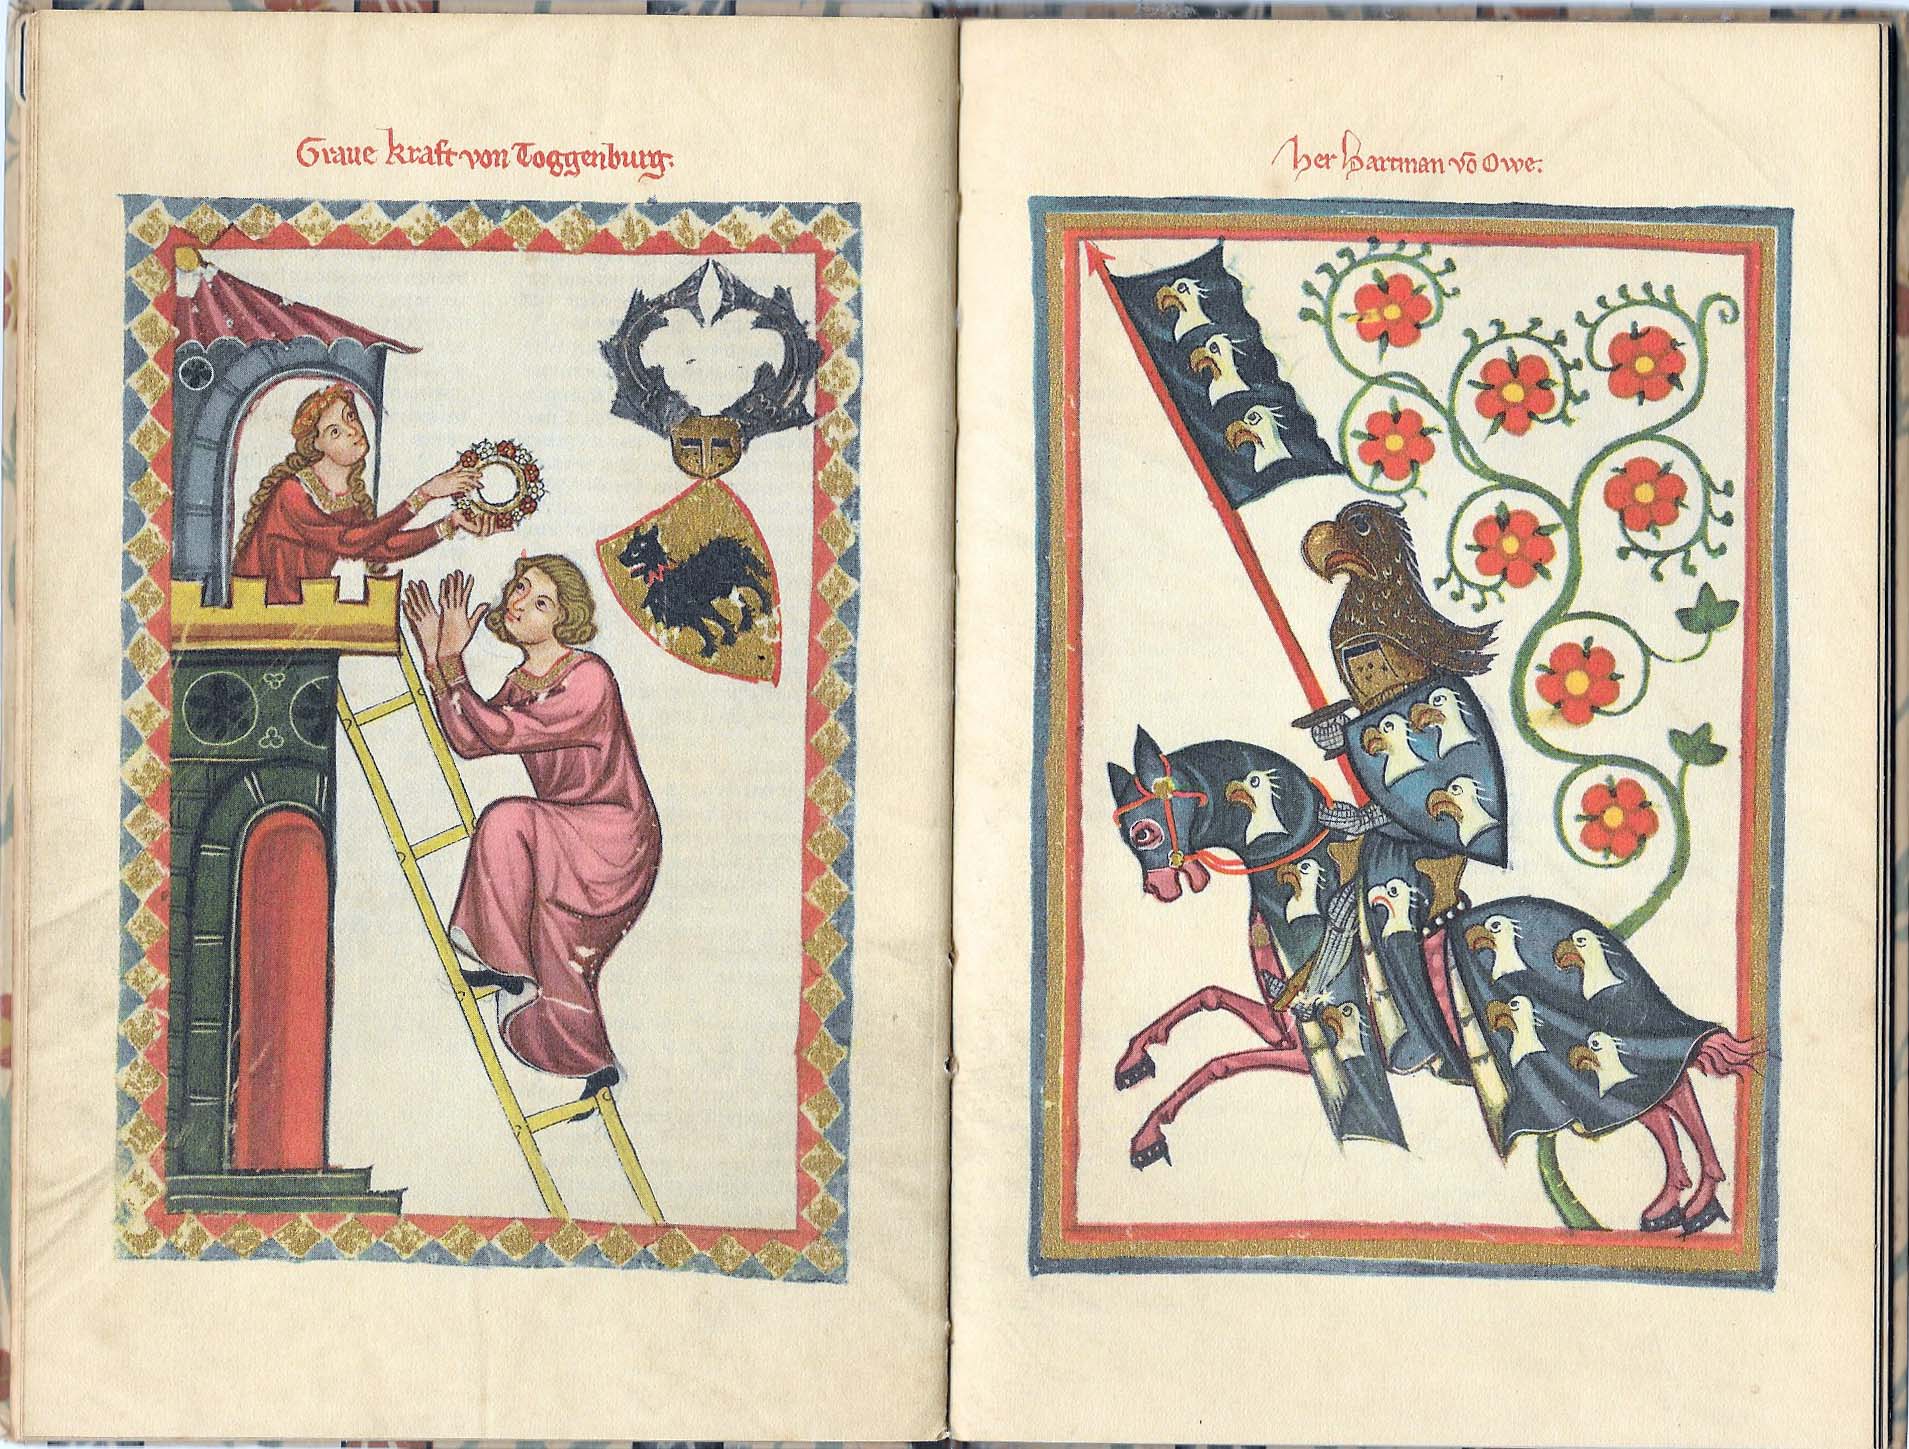 Graue kraft von Toggenburg.
Her Hartman vō Owe.